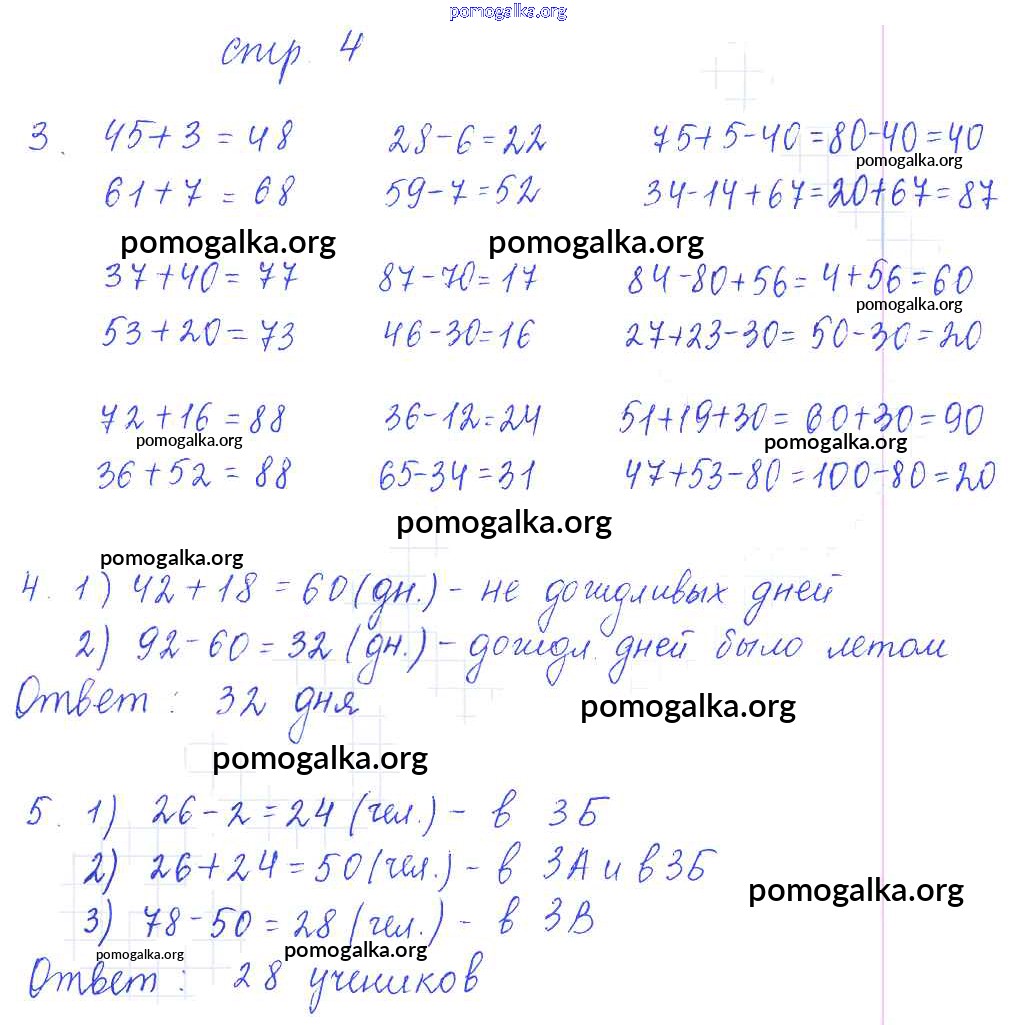 pomogalka.org
стр. 4
3. 45+3=48 28-6=22 75+5-40=80-40=40
pomogalka.org
61+7=68 59-7=52 34-14+67=20+67=87
pomogalka.org pomogalka.org
37+40=77 87-70=17 84-80+56=4+56=60
pomogalka.org
53+20=73 46-30=16 27+23-30=50-30=20
72+16=88 36-12=24 51+19+30=60+30=90
pomogalka.org pomogalka.org
36+52=88 65-34=31 47+53-80=100-80=20
pomogalka.org
pomogalka.org
4. 1) 42+18=60 (дн.) - не дождливых дней
2) 92-60=32 (дн.) - дождл. дней было летом
Ответ: 32 дня
pomogalka.org
pomogalka.org
5. 1) 26-2=24 (чел.) - в 3Б
2) 26+24=50 (чел.) - в 3А и в 3Б
pomogalka.org
3) 78-50=28 (чел.) - в 3В
pomogalka.org pomogalka.org
Ответ: 28 учеников